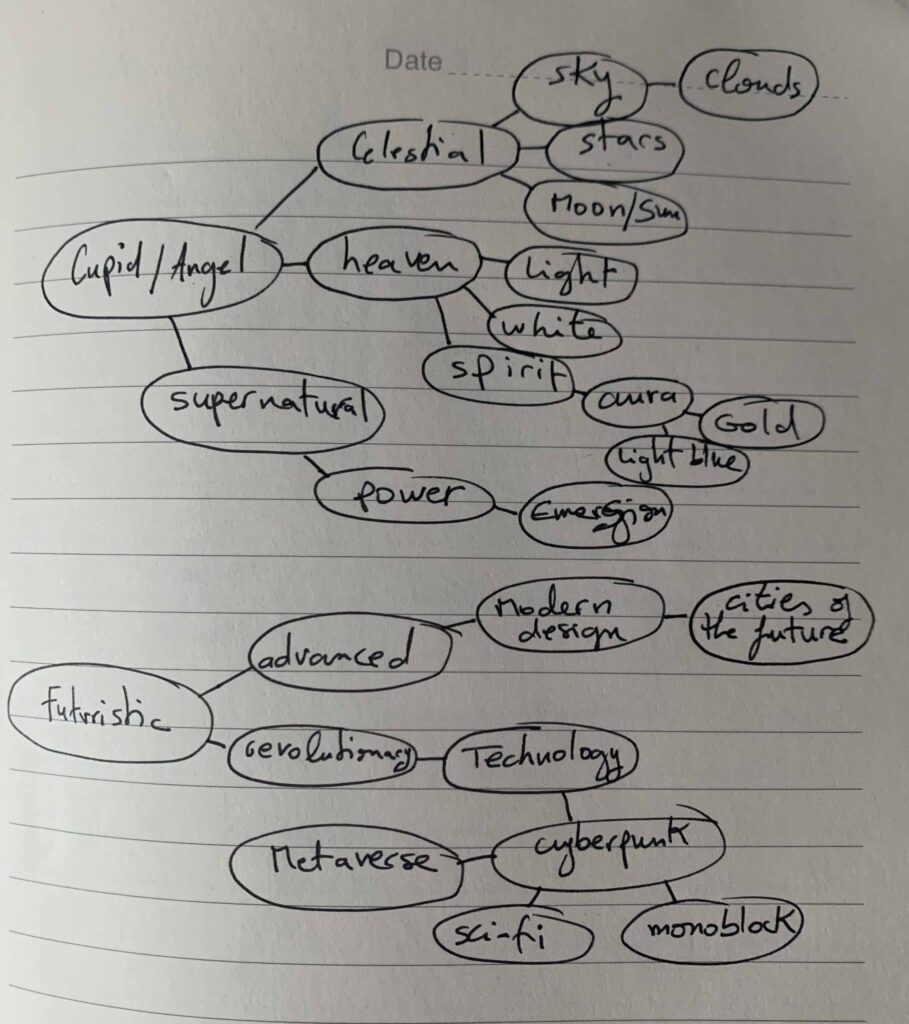 Date
sky
Clouds
Celestial
stars
Moon/Sun
Cupid/Angel
heaven
Light
white
spirit
aura
Gold
Light blue
supernatural
power
Modern
design
cities of
the future
advanced
futuristic
revolutionary
Technology
cyberpunk
Metaverse
sci-fi
monoblock